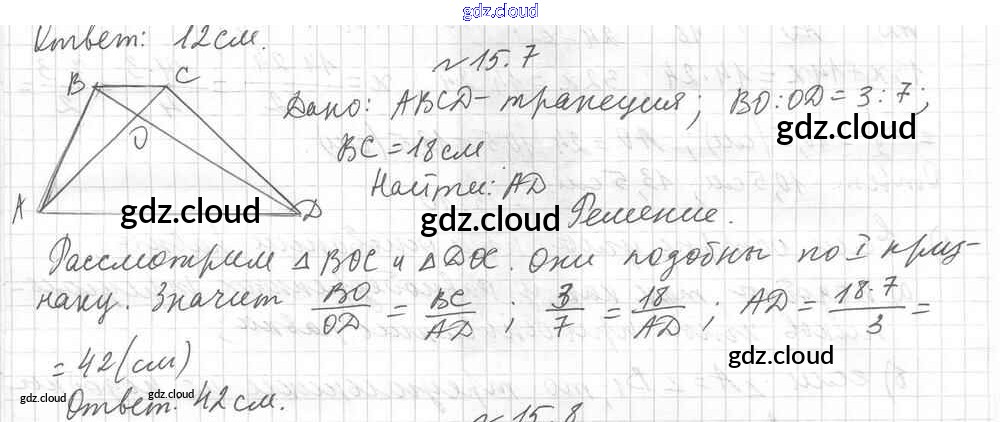 gdz.cloud
Ответ: 12 см.
№ 15.7
B C
O
A D
Дано: ABCD - трапеция; BO:OD = 3:7;
gdz.cloud
BC = 18 см
Найти: AD
gdz.cloud gdz.cloud
Решение.
Рассмотрим △ BOC и △ DOC. Они подобны по I приз-
наку. Значит BO/OD = BC/AD ; 3/7 = 18/AD ; AD = 18·7/3 =
= 42 (см)
gdz.cloud
gdz.cloud gdz.cloud
Ответ. 42 см.
№ 15.8